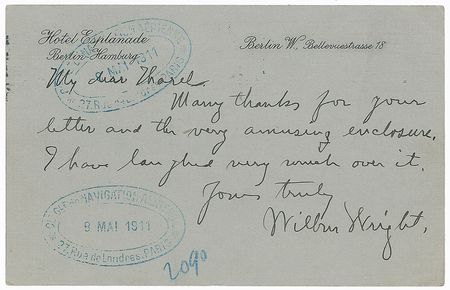 Hotel Esplanade
Berlin-Hamburg
Berlin W., Bellevuestrasse 18
MAI 1911
27, Rue de Londres, PARIS
My dear Tharel.
Many thanks for your
letter and the very amusing enclosure.
I have laughed very much over it.
Yours truly
Wilbur Wright.
NAVIGATION AÉRIENNE
8 MAI 1911
27, Rue de Londres, PARIS
2090